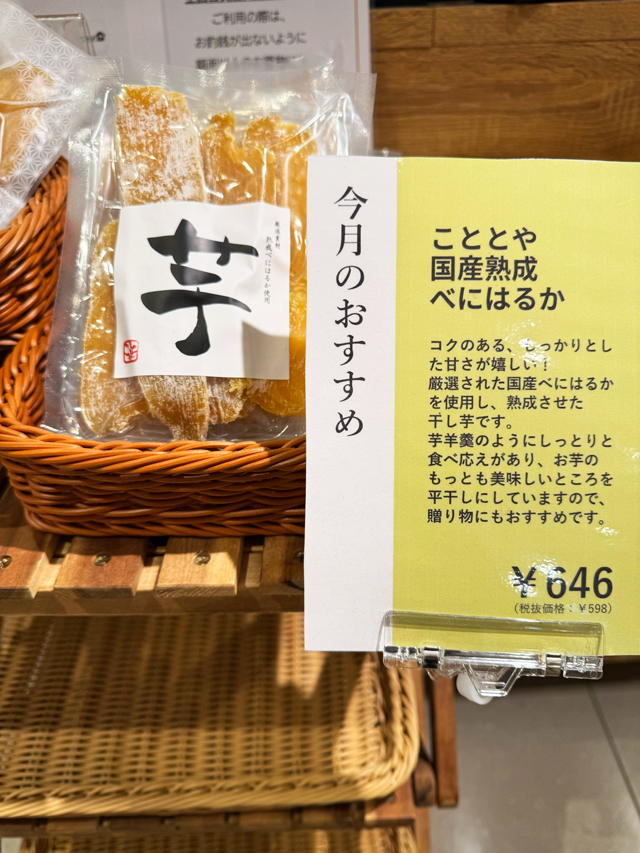 ご利用の際は、
お釣銭が出ないように
芋
熟成べにはるか使用
今月のおすすめ
こととや
国産熟成
べにはるか
コクのある、しっかりとし
た甘さが嬉しい！
厳選された国産べにはるか
を使用し、熟成させた
干し芋です。
芋羊羹のようにしっとりと
食べ応えがあり、お芋の
もっとも美味しいところを
平干しにしていますので、
贈り物にもおすすめです。
￥646
（税抜価格：￥598）